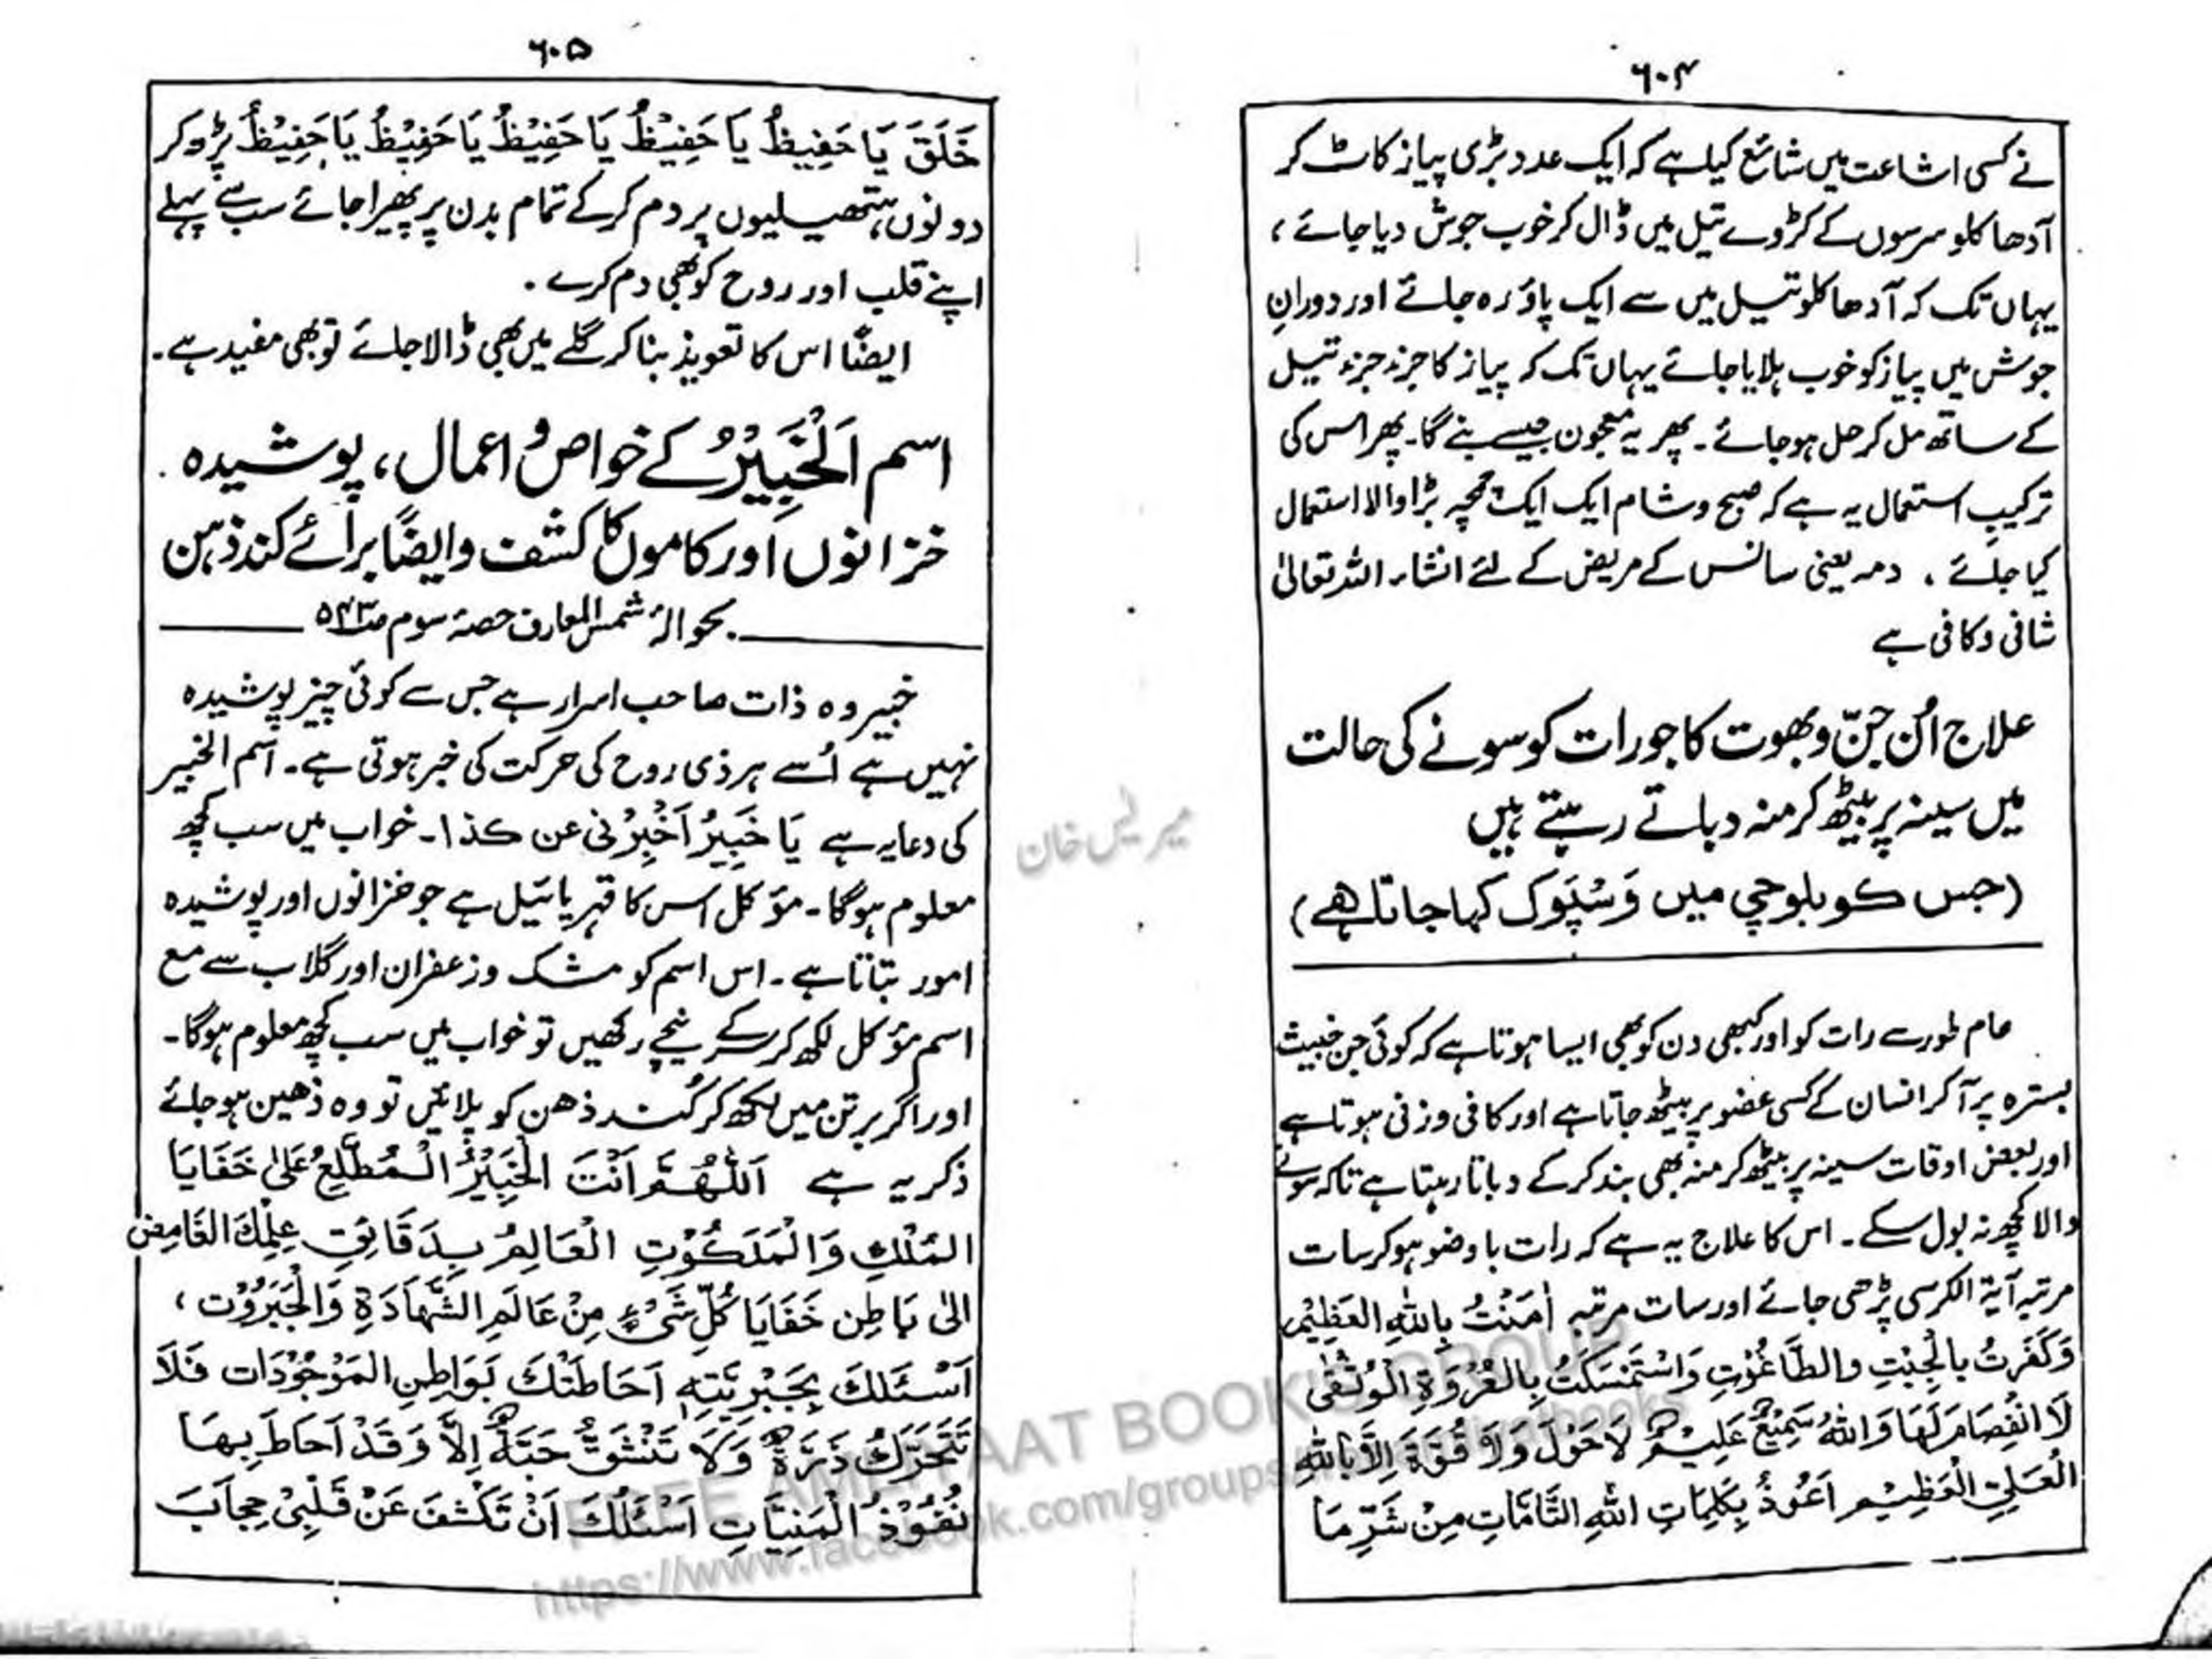 ۶۰۴
نے کسی اشاعت میں شائع کیا ہے کہ ایک عدد بڑی پیاز کاٹ کر
آدھا کلو سرسوں کے کڑوے تیل میں ڈال کر خوب جوش دیا جائے ،
یہاں تک کہ آدھا کلو تیل میں سے ایک پاؤ رہ جائے اور دورانِ
جوش میں پیاز کو خوب ہلایا جائے یہاں تک کہ پیاز کا جزء جزء تیل
کے ساتھ مل کر حل ہو جائے ۔ پھر یہ معجون جیسے بنے گا ۔ پھر اس کی
ترکیبِ استعمال یہ ہے کہ صبح و شام ایک ایک چمچہ بڑا والا استعمال
کیا جائے ، دمہ یعنی سانس کے مریض کے لئے انشاء اللہ تعالیٰ
شافی و کافی ہے
علاج اُن جنّ و بھوت کا جو رات کو سونے کی حالت
میں سینہ پر بیٹھ کر منہ دباتے رہتے ہیں
(جس کو بلوچی میں وَسْپَوک کہا جاتا ھے)
عام طور سے رات کو اور کبھی دن کو بھی ایسا ہوتا ہے کہ کوئی جن خبیث
بسترہ پر آکر انسان کے کسی عضو پر بیٹھ جاتا ہے اور کافی وزنی ہوتا ہے
اور بعض اوقات سینہ پر بیٹھ کر منہ بھی بند کر کے دباتا رہتا ہے تاکہ سونے
والا کچھ نہ بول سکے ۔ اس کا علاج یہ ہے کہ رات با وضو ہو کر سات
مرتبہ آیۃ الکرسی پڑھی جائے اور سات مرتبہ اٰمَنْتُ بِاللّٰهِ العَظِيْم
وَكَفَرتُ بالْجِبْتِ والطَّاغُوْتِ وَاسْتَمْسَكْتُ بِالْعُرْوَةِ الْوُثْقٰى
لَا انْفِصَامَ لَهَا وَاللّٰهُ سَمِيْعٌ عَلِيْمٌ لَا حَوْلَ وَلَا قُوَّةَ اِلَّا بِاللّٰهِ
الْعَلِيِّ الْعَظِيْم اَعُوذُ بِكَلِمَاتِ اللّٰهِ التَّامَّاتِ مِنْ شَرِّ مَا
۶۰۵
خَلَقَ يَا حَفِيظُ يَا حَفِيْظُ يَا حَفِيْظُ يَا حَفِيْظُ يَا حَفِيْظُ پڑھ کر
دونوں ہتھیلیوں پر دم کر کے تمام بدن پر پھیرا جائے سب سے پہلے
اپنے قلب اور روح کو بھی دم کرے ۔
ایضًا اس کا تعویذ بنا کر گلے میں بھی ڈالا جائے تو بھی مفید ہے ۔
اسم اَلْخَبِيْرُ کے خواص و اعمال ، پوشیدہ
خزانوں اور کاموں کا کشف و ایضًا برائے کند ذہن
بحوالہ شمس المعارف حصۂ سوم صـ۵۴۳
خبیر وہ ذات صاحب اسرار ہے جس سے کوئی چیز پوشیدہ
نہیں ہے اُسے ہر ذی روح کی حرکت کی خبر ہوتی ہے ۔ اسم الخبیر
کی دعا یہ ہے يَا خَبِيرُ اَخْبِرْنی عن كذا ۔ خواب میں سب کچھ
معلوم ہوگا ۔ مؤکل اس کا قہریائیل ہے جو خزانوں اور پوشیدہ
امور بتاتا ہے ۔ اس اسم کو مشک و زعفران اور گلاب سے مع
اسم مؤکل لکھ کر سر کے نیچے رکھیں تو خواب میں سب کچھ معلوم ہوگا ۔
اور اگر برتن میں لکھ کر کُند ذھن کو پلائیں تو وہ ذھین ہو جائے
ذکر یہ ہے اَللّٰهُمَّ اَنْتَ الْخَبِيْرُ الْمُطَّلِعُ عَلٰى خَفَايَا
المُلْكِ وَالْمَلَكُوْتِ الْعَالِمُ بِدَقَائِقِ عِلْمِكَ الغَامِضِ
الٰى بَاطِنِ خَفَايَا كُلِّ شَيْءٍ مِنْ عَالَمِ الشَّهَادَةِ وَالْجَبَرُوْتِ ،
اَسْئَلُكَ بِجَبْرِيَّتِهٖ اَحَاطَتْكَ بَوَاطِنِ المَوْجُوْدَات فَلَا
تَتَحَرَّكُ ذَرَّةٌ وَلَا تَنْشَقُّ حَبَّةٌ اِلَّا وَقَدْ اَحَاطَ بِهَا
نُفُوْذُ الْمَنِيَّاتِ اَسْئَلُكَ اَنْ تَكْشِفَ عَنْ قَلْبِيْ حِجَابَ
FREE AMLIYAAT BOOK'S GROUP